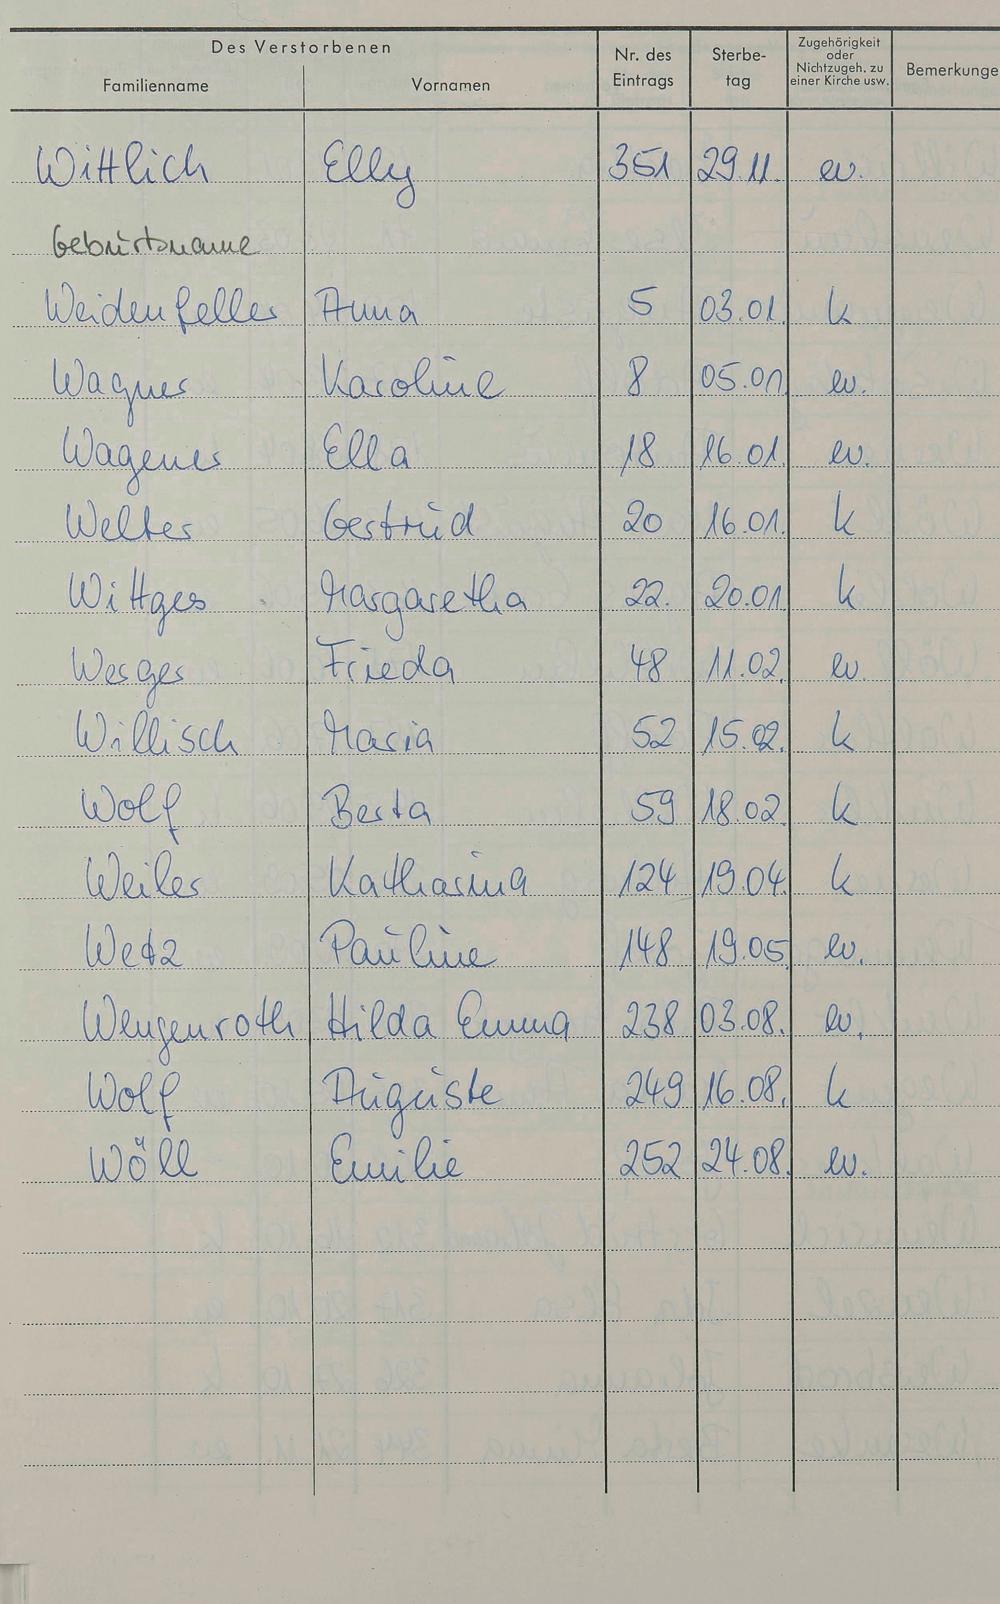 Des Verstorbenen
Familienname Vornamen Nr. des Eintrags Sterbe-tag Zugehörigkeit oder Nichtzugeh. zu einer Kirche usw. Bemerkunge
Wittlich Elly 351 29.11. ev.
Geburtsname
Weidenfeller Anna 5 03.01. k
Wagner Karoline 8 05.01. ev.
Wagener Ella 18 16.01. ev.
Welter Gertrud 20 16.01. k
Wittges Margaretha 22. 20.01. k
Werges Frieda 48 11.02. ev.
Willisch Maria 52 15.02. k
Wolf Berta 59 18.02. k
Weiler Katharina 124 19.04. k
Wetz Pauline 148 19.05. ev.
Wengenroth Hilda Emma 238 03.08. ev.
Wolf Auguste 249 16.08. k
Wöll Emilie 252 24.08. ev.